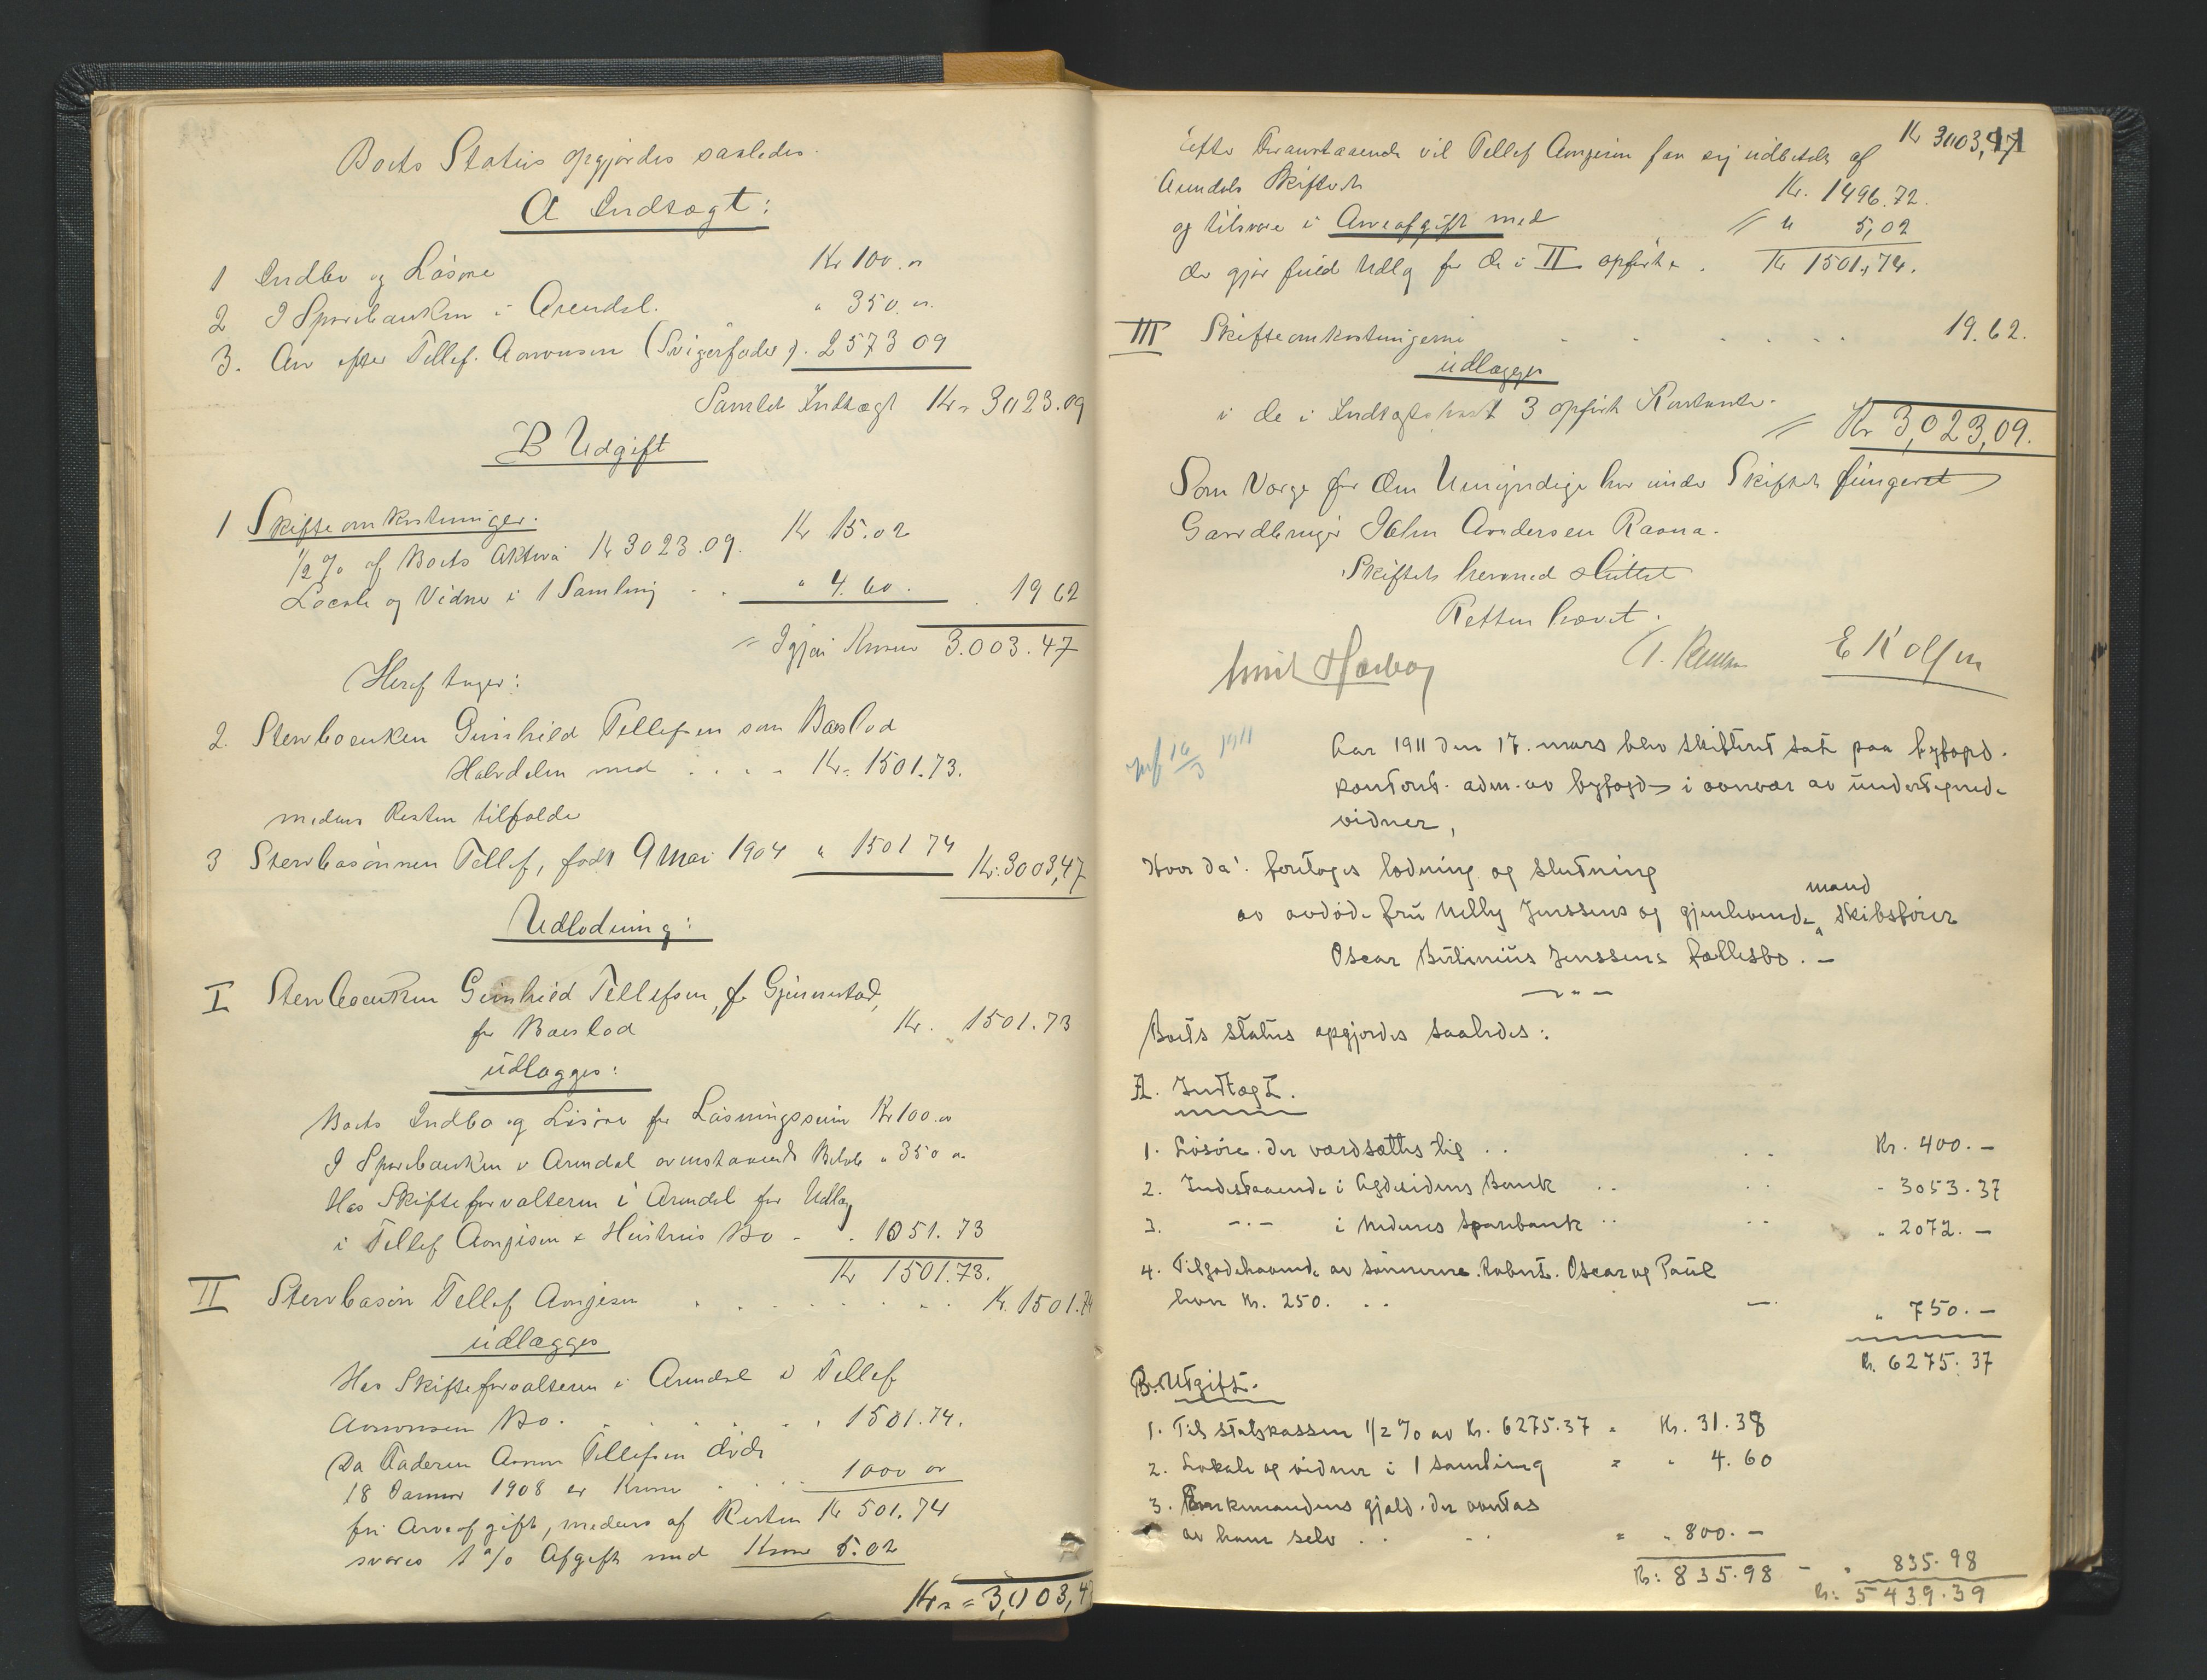 Boets Status opgjørdes saaledes.
A Indtægt:
1 Indbo og Løsøre Kr 100.00
2 I Sparebanken i Arendal. " 350.00.
3. Arv efter Tellef Aanonsen (Svigerfader). 2573 09
Samlet Indtægt Kr= 3023.09
B Udgift
1 Skifteomkostninger.
1/2 % af Boets Aktiva Kr 3023.09. Kr 15.02
Locale og Vidner i 1 Samling . . " 4.60. . 19 62
= Igjen Kroner 3.003.47
Heraf tager:
2. Stervboenken Gunhild Tellefsen som Boeslod
Halvdelen med . . . . Kr. 1501.73.
medens Resten tilfalder
3 Stervbosønnen Tellef, født 9 Mai 1904 " 1501 74 Kr. 3003,47
Udlodning:
I Stervboenken Gunhild Tellefsen, f. Gjennestad,
for Boeslod Kr. 1501.73
udlægges:
Boets Indbo og Løsøre for Løsningssum Kr 100.00
I Sparebanken i Arendal ovenstaaende Beløb " 350 00
Hos Skifteforvalteren i Arendal for Udlæg
i Tellef Aongisen & Hustrus Bo - . 1051.73
Kr 1501.73.
II Stervbosøn Tellef Aongisen . . . . . . . Kr. 1501.74
udlægges
Hos Skifteforvalteren i Arendal i Tellef
Aanonsens Bo. . . . . . . 1501.74.
Da Faderen Aanon Tellefsen døde
18 Januar 1908 er Kroner . . . 1000 00
fri Arveafgift, medens af Resten Kr 501.74
svares 1 % Afgift med Kroner 5.02
Kr= = 3,003,47
Kr 3003,47
Efter Foranstaaende vil Tellef Aongisen faa sig udbetalt af
Arendals Skifteret Kr. 1496.72.
og tilsvare i Arveafgift med = " 5,02
der gjør fuld Udlæg for de i II opførte . Kr 1501,74.
III Skifteomkostningerne . . . . . . . 19.62.
udlægges
i de i Indtægtspost 3 opført Kontanter.
= Kr 3,023,09.
Som Værge for den Umyndige har under Skiftet fungeret
Gaardbruger John Andersen Raona.
Skiftet hermed sluttet
Retten hævet.
E Rolfsen
16/3 1911
Aar 1911 den 17. mars blev skifteret sat paa byfogd-
kontoret. adm. av byfogden i overvær av undertegnede
vidner,
Hvor da: foretoges lodning og slutning
av avdøde fru Nelly Jenssens og gjenlevende mand skibsfører
Oscar Butinius Jenssens fællesbo. -
- " -
Boets status opgjordes saaledes:
A. Indtægt.
1. Løsøre. der værdsættes til . . . . Kr. 400. -
2. Indestaaende i Agdesidens Bank . . . . - 3053.37
3. - . - i Nedenes Sparebank . . . . " 2072. -
4. Tilgodehavende av sønnerne. Robert. Oscar og Paul
hver Kr. 250. . . - " 750. -
Kr. 6275.37
B. Utgift.
1. Til statskassen 1/2 % av Kr. 6275.37 = Kr. 31.38
2. Lokale og vidner i 1 samling = " 4.60
3. Enkemandens gjæld. der overtas
av ham selv . . . . = " 800. -
Kr: 835.98 - " 835.98
Kr: 5439.39